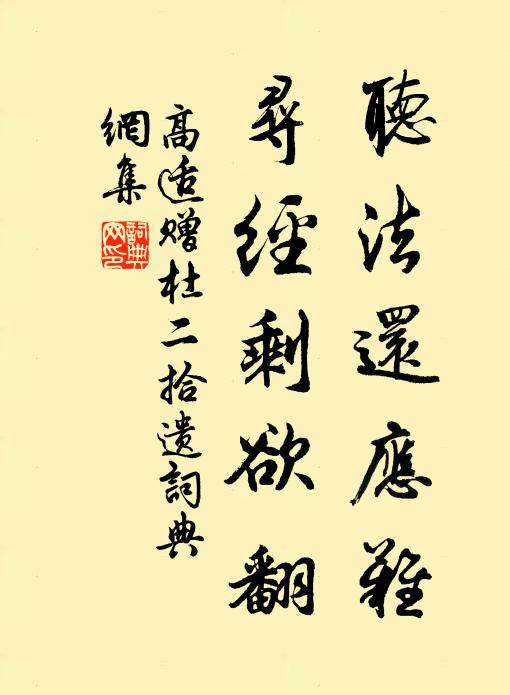 聽法還應難
尋經剩欲翻
高适贈杜二拾遺詞典
網集
詞典
网印